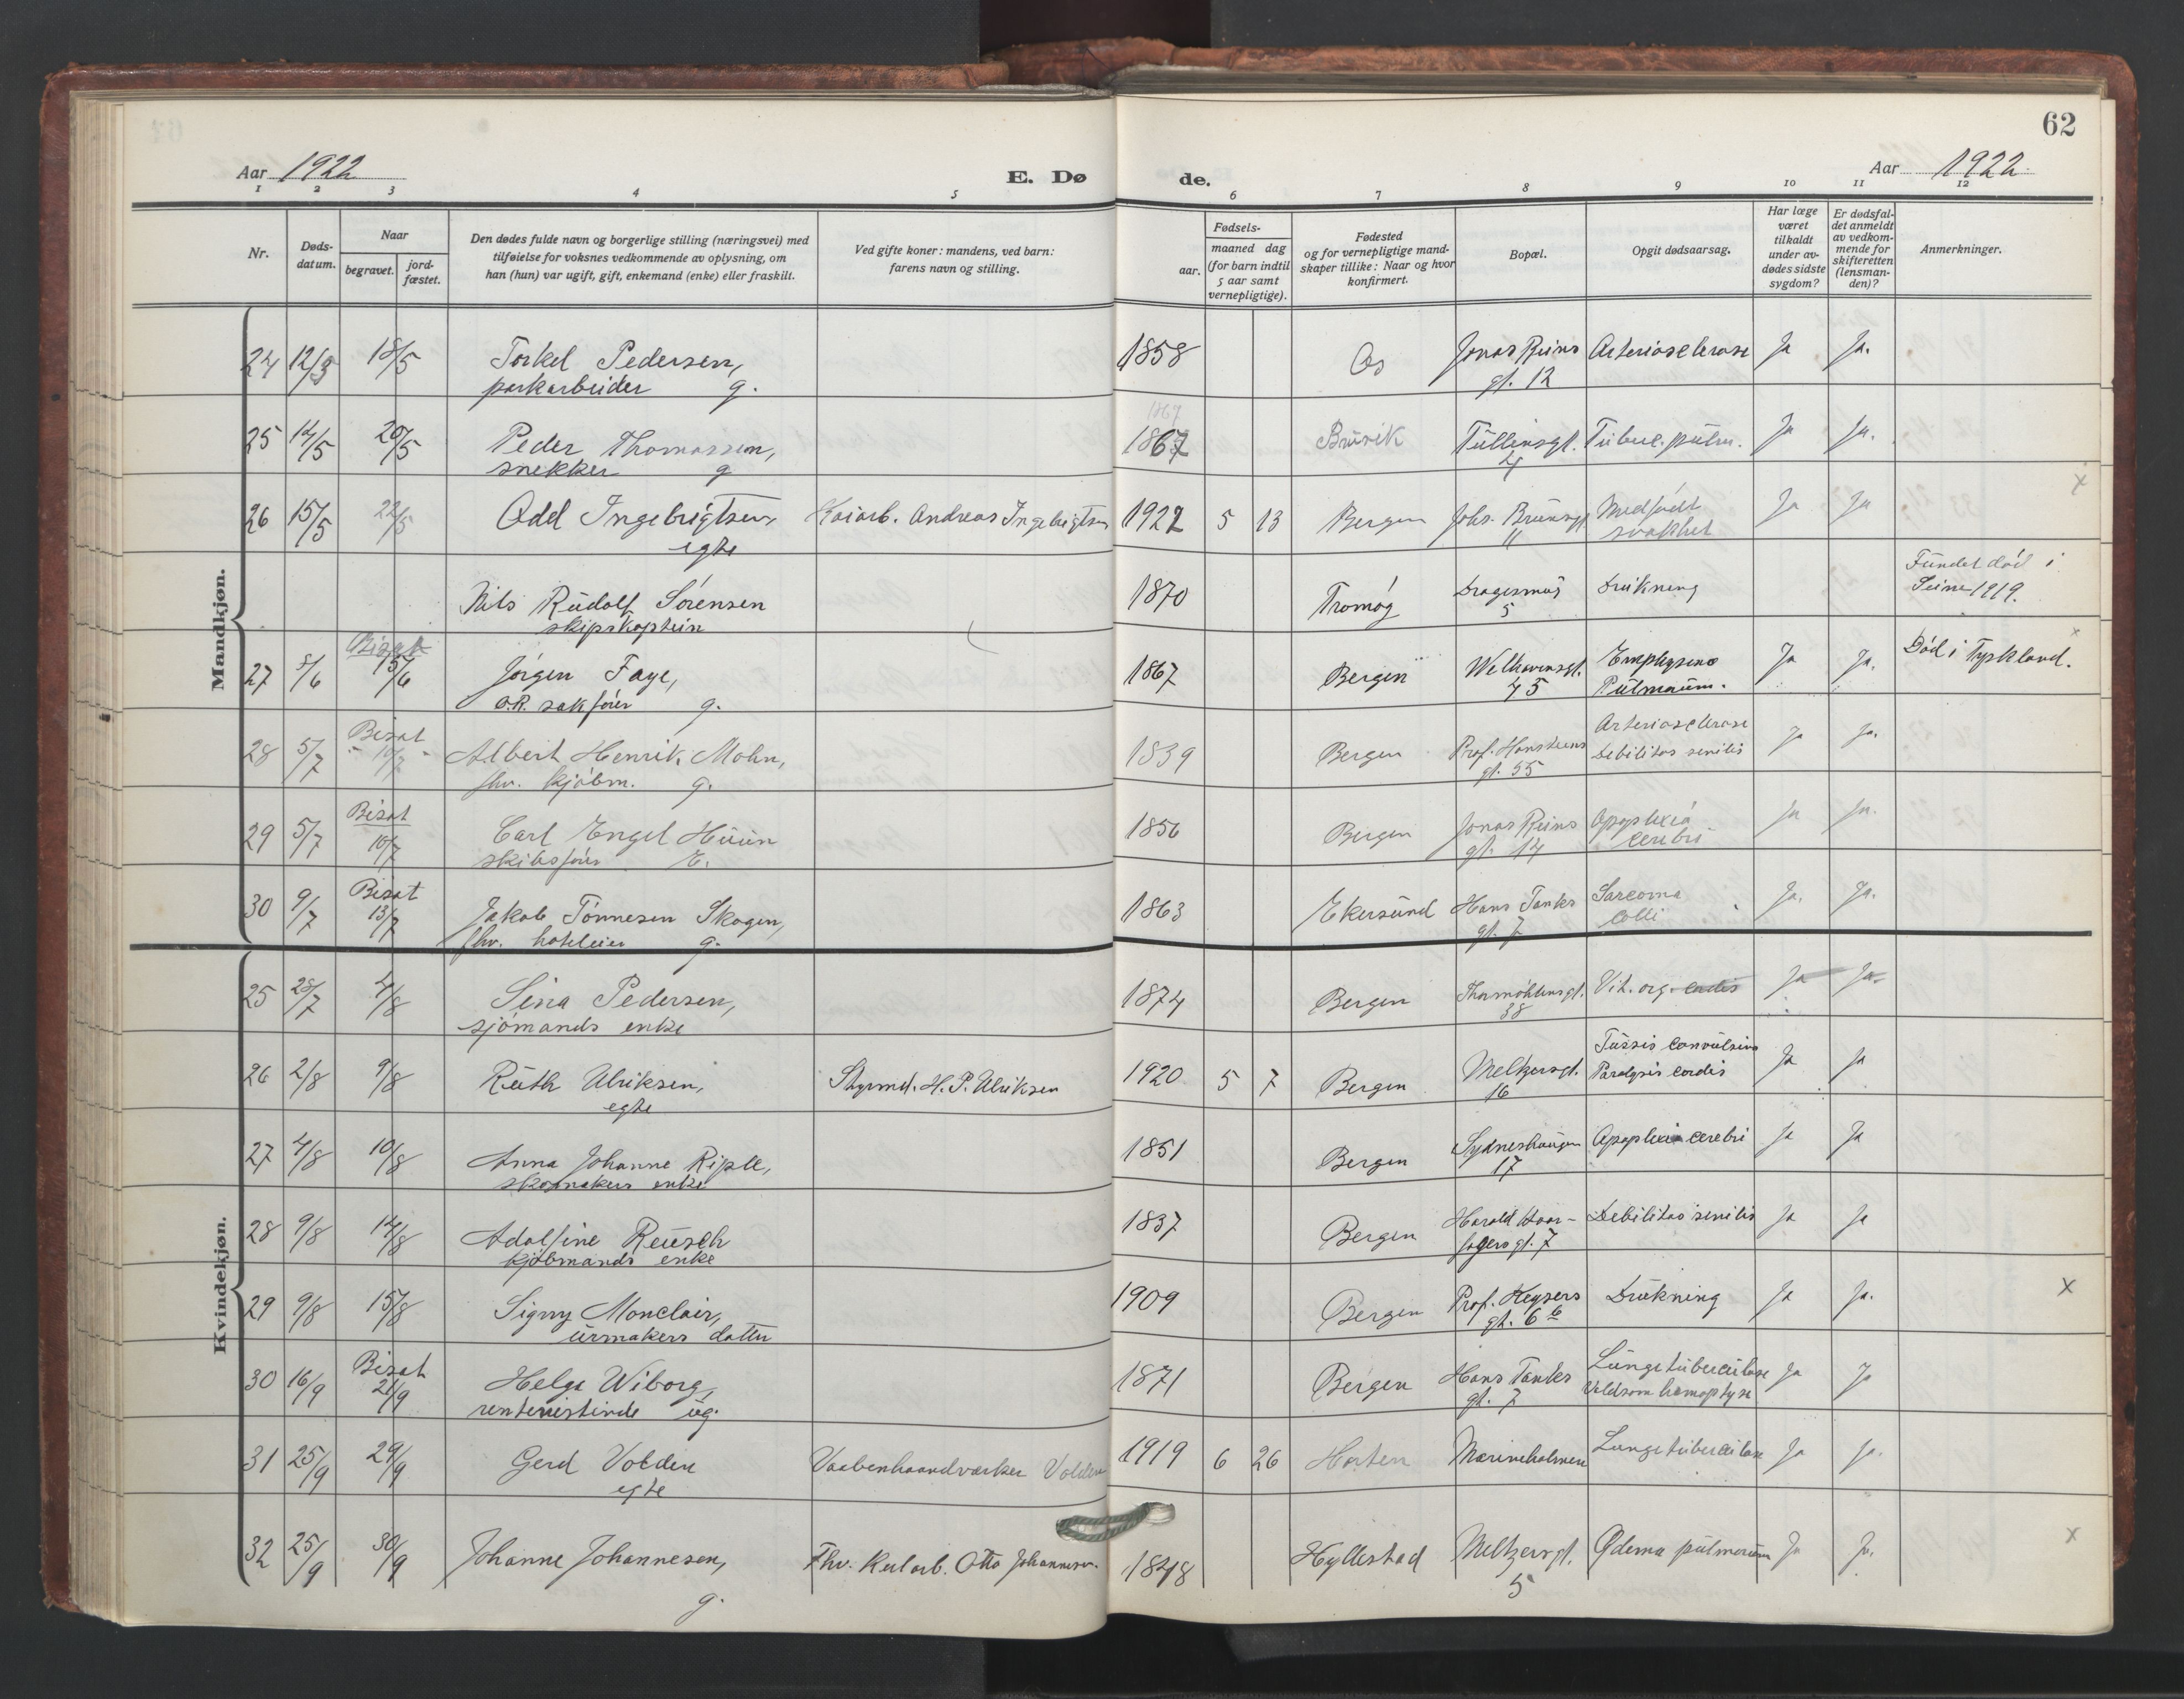 62
Aar 1922
E. Dø
de.
Aar 1922.
1 2 3 4 5 6 7 8 9 10 11 12
Nr.
Døds-
datum.
Naar
begravet.
jord-
fæstet.
Den dødes fulde navn og borgerlige stilling (næringsvei) med
tilføielse for voksnes vedkommende av oplysning, om
han (hun) var ugift, gift, enkemand (enke) eller fraskilt.
Ved gifte koner: mandens, ved barn:
farens navn og stilling.
Fødsels-
aar.
maaned dag
(for barn indtil
5 aar samt
vernepligtige).
Fødested
og for vernepligtige mand-
skaper tillike: Naar og hvor
konfirmert.
Bopæl.
Opgit dødsaarsag.
Har læge
været
tilkaldt
under av-
dødes sidste
sygdom?
Er dødsfal-
det anmeldt
av vedkom-
mende for
skifteretten
(lensman-
den)?
Anmerkninger.
Mandkjøn.
24 12/3 18/5 Torkel Pedersen, 1858 Os Jonas Reins Arteriosclerose Ja Ja.
parkarbeider g. gt. 12
1867
25 14/5 20/5 Peder Thomassen, 1867 Bruvik Tullinsgt. Tuberc. pulm. Ja Ja.
snekker g 4
26 15/5 22/5 Odd Ingebrigtsen, Kaiarb. Andreas Ingebrigtsen 1922 5 13 Bergen Johs. Brunsgt. Medfødt Ja Ja x
egte 11 svakhet
Nils Rudolf Sørensen 1870 Tromøy Dragesmug Drukning Fundet død i
skipskaptein 5 Seine 1919.
Bisat
27 5/6 15/6 Jørgen Faye, 1867 Bergen Welhavensgt. Emphysema Ja Ja. Død i Tyskland. x
O.R. sakfører g. 75 Pulmonum.
28 5/7 Bisat 10/7 Albert Henrik Mohn, 1839 Bergen Prof. Hansteens Arteriosclerose Ja Ja.
fhv. kjøbm. g. gt. 55 Debilitas senilis
29 5/7 Bisat 10/7 Carl Engel Huun 1856 Bergen Jonas Reins Apoplexia Ja Ja.
skibsfører E. gt. 14 cerebri
30 9/7 Bisat 13/7 Jakob Tønnesen Skogen, 1863 Ekersund Hans Tanks Sarcoma Ja. Ja.
fhv. hoteleier g. gt. 7 Colli
Kvindekjøn.
25 28/7 4/8 Sina Pedersen, 1874 Bergen Thormøhlensgt. Vit. org. cordis Ja Ja
sjømands enke 38
26 2/8 9/8 Ruth Ulriksen, Styrmd. H. P. Ulriksen 1920 5 7 Bergen Meltzersgt. Tussis convulsiva Ja Ja
egte 16 Paralysis cordis
27 4/8 10/8 Anna Johanne Riple, 1851 Bergen Sydneshaugen Apoplexia cerebri Ja Ja
skomakers enke 17
28 9/8 14/8 Adolfine Reusch 1837 Bergen Harald Haar- Debilitas senilis Ja Ja
kjøbmands enke fagersgt. 7
29 9/8 15/8 Signy Monclair, 1909 Bergen Prof. Keysers Drukning Ja Ja. x
urmakers datter gt. 6 b
30 16/9 Bisat 21/9 Helga Wiborg, 1871 Bergen Hans Tanks Lungetuberculose Ja Ja
rentenistinde ug. gt. 7 Voldsom hæmoptyse
31 25/9 29/9 Gerd Volden Vaabenhaandverker Volden 1919 6 26 Horten Marineholmen Lungetuberculose Ja Ja.
egte
32 25/9 30/9 Johanne Johannesen, Fhv. Kularb. Otto Johannesen. 1848 Hyllestad Meltzersgt. Ødema pulmonum Ja Ja. x
g. 5